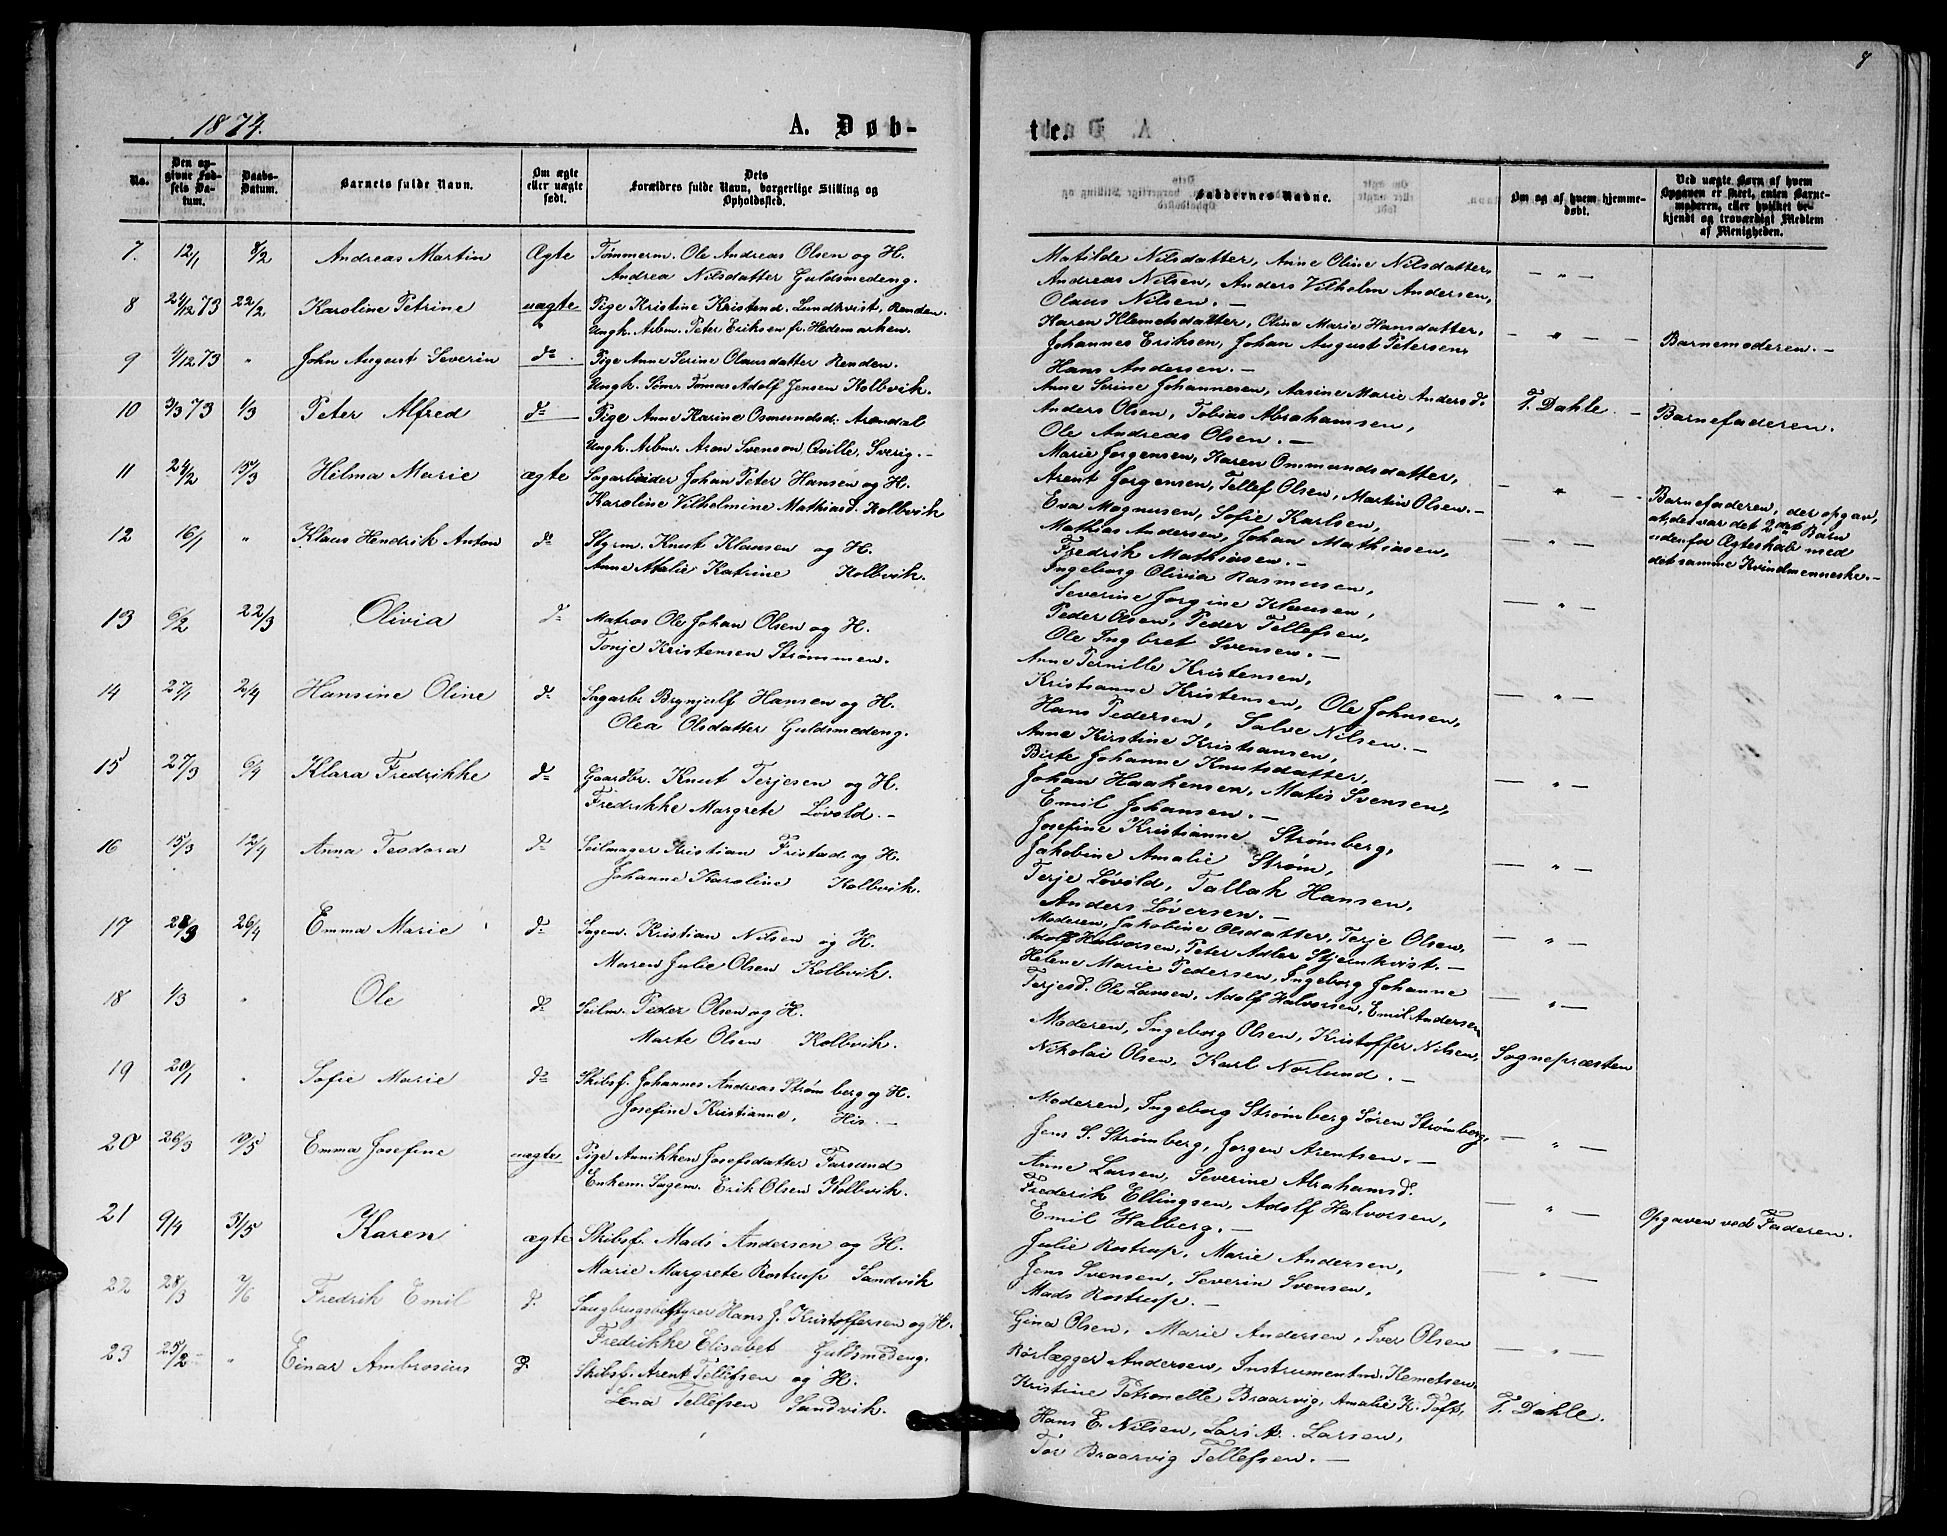 8
1874.
A. Døb-
te.
No.
Den op-
givne Fød-
sels Da-
tum.
Daabs-
Datum.
Barnets fulde Navn.
Om ægte
eller uægte
født.
Dets
Forældres fulde Navn, borgerlige Stilling og
Opholdssted.
Faddernes Navne.
Om og af hvem hjemme-
døbt.
Ved uægte Børn af hvem
Opgaven er skeet, enten Barne-
moderen, eller hvilket be-
kjendt og troværdigt Medlem
af Menigheden.
7. 12/1 8/2 Andreas Martin Ægte Tømmerm. Ole Andreas Olsen og H.
Andrea Nilsdatter Guldsmedeng.
8 24/12 73 22/2 Karoline Petrine uægte Pige Kristine Kristensd. Lundkvist, Renden.
Ungk. Arbm. Peter Eriksen fr. Hedemarken.
9 4/12 73 " John August Severin do. Pige Anne Serine Olausdatter Renden.
Ungk. Sømr. Tomas Adolf Jensen Kolbvik.
10 9/3 73 1/3 Peter Alfred do Pige Anne Karine Osmundsd. Arendal
Ungk. Arbm. Aron Svenson Qville, Sverig. -
11 24/2 15/3 Helma Marie ægte Sagarbeider Johan Peter Hansen og H.
Karoline Vilhelmine Mathiasd. Kolbvik
12 16/1 " Klaus Hendrik Anton do Stgrm. Knut Klausen og H.
Anne Atalie Katrine Kolbvik.
13 6/2 22/3 Olivia do Matros Ole Johan Olsen og H.
Tonje Kristensen Strømmen.
14 27/1 2/4 Hansine Oline do Sagarb. Brynjulf Hansen og H.
Olea Olsdatter Guldsmedeng.
15 27/3 6/4 Klara Fredrikke do Gaardbr. Knut Terjesen og H.
Fredrikke Margrete Løvold. -
16 15/3 12/4 Anna Teodora do Seilmager Kristian Fristad og H.
Johanne Karoline Kolbvik.
17 28/3 26/4 Emma Marie do Sagm. Kristian Nilsen og H.
Maren Julie Olsen Kolbvik.
18 1/3 " Ole do Seilm. Peder Olsen og H.
Marte Olsen Kolbvik.
19 20/1 " Sofie Marie do Skibsf. Johannes Andreas Strømberg og H.
Josefine Kristianne, His. -
20 26/3 10/5 Emma Josefine uægte Pige Annikken Josefsdatter Farsund
Enkem. Sagm. Erik Olsen Kolbvik.
21 9/4 31/5 Karen ægte Skibsf. Mads Andersen og H.
Marie Margrete Rostrup Sandvik
22 28/3 7/6 Fredrik Emil do Saugbrugsbestyrer Hans J. Kristoffersen og H.
Fredrikke Elisabet Guldsmedeng.
23 25/2 " Einar Ambrosius do Skibsf. Arent Tellefsen og H.
Lena Tellefsen Sandvik.
Matilde Nilsdatter, Anne Oline Nilsdatter,
Andreas Nilsen, Anders Vilhelm Andersen,
Olaus Nilsen. -
Karen Klemetsdatter, Oline Marie Hansdatter,
Johannes Eriksen, Johan August Petersen,
Hans Andersen. -
Anne Serine Johannesen, Aasine Marie Andersd.
Anders Olsen, Tobias Abrahamsen,
Ole Andreas Olsen. -
Marie Jorgensen, Karen Ommundsdatter,
Arent Jorgensen, Tellef Olsen, Martin Olsen. -
Eva Magnusen, Sofie Karlsen,
Mathias Andersen, Johan Mathiasen,
Fredrik Mathiasen. -
Ingeborg Olivia Rasmussen,
Severine Jorgine Klausen,
Peder Olsen, Peder Tellefsen,
Ole Ingbret Svensen. -
Anne Pernille Kristensen,
Kristianne Kristensen, Ole Johnsen,
Hans Pedersen, Salve Nilsen. -
Anne Kirstine Kristiansen,
Birte Johanne Knutsdatter,
Johan Haakensen, Matis Svensen,
Emil Johansen. -
Josefine Kristianne Strømberg,
Jakobine Amalie Strøm,
Terje Løvold, Tallak Hansen,
Anders Løversen. -
Moderen, Jakobine Olsdatter, Terje Olsen,
Adolf Halvorsen, Peter Adler Stjernkvist. -
Helene Marie Pedersen, Ingeborg Johanne
Terjesd. Ole Larsen, Adolf Halvorsen, Emil Andersen
Moderen, Ingeborg Olsen, Kristoffer Nilsen,
Nikolai Olsen, Karl Noslund. -
Moderen, Ingeborg Strømberg Søren Strømberg,
Jens S. Strømberg, Jorgen Arentsen. -
Anne Larsen, Severine Abrahamsd.
Frederik Ellingsen, Adolf Halvorsen,
Emil Halberg. -
Julie Rostrup, Marie Andersen,
Jens Svensen, Severin Svensen,
Mads Rostrup. -
Gina Olsen, Marie Andersen, Iver Olsen
Rørlægger Andersen, Instrumentm. Kemetsen.
Kristine Petronelle Braarvig, Amalie K. Toft,
Hans E. Nilsen, Lars A. Larsen,
Tor Braarvig Tellefsen. -
T. Dahle. -
Sognepræsten
T. Dahle.
Barnemoderen. -
Barnefaderen.
Barnefaderen, der opgav,
at det var det 2det Barn
udenfor Ægteskab med
det samme Kvindmenneske. -
Opgaven ved Faderen.